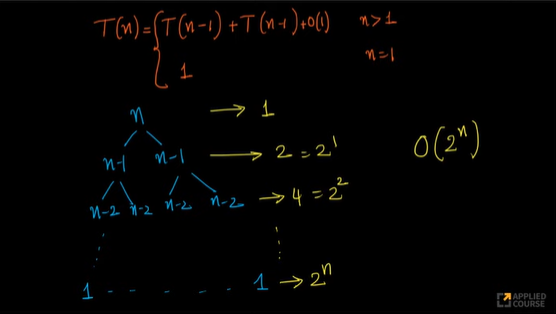 T(n) = { T(n-1) + T(n-1) + O(1)  n>1
1  n=1
n → 1
n-1 n-1 → 2 = 2^1
O(2^n)
n-2 n-2 n-2 n-2 → 4 = 2^2
1 - - - - - - 1 → 2^n
APPLIED
COURSE